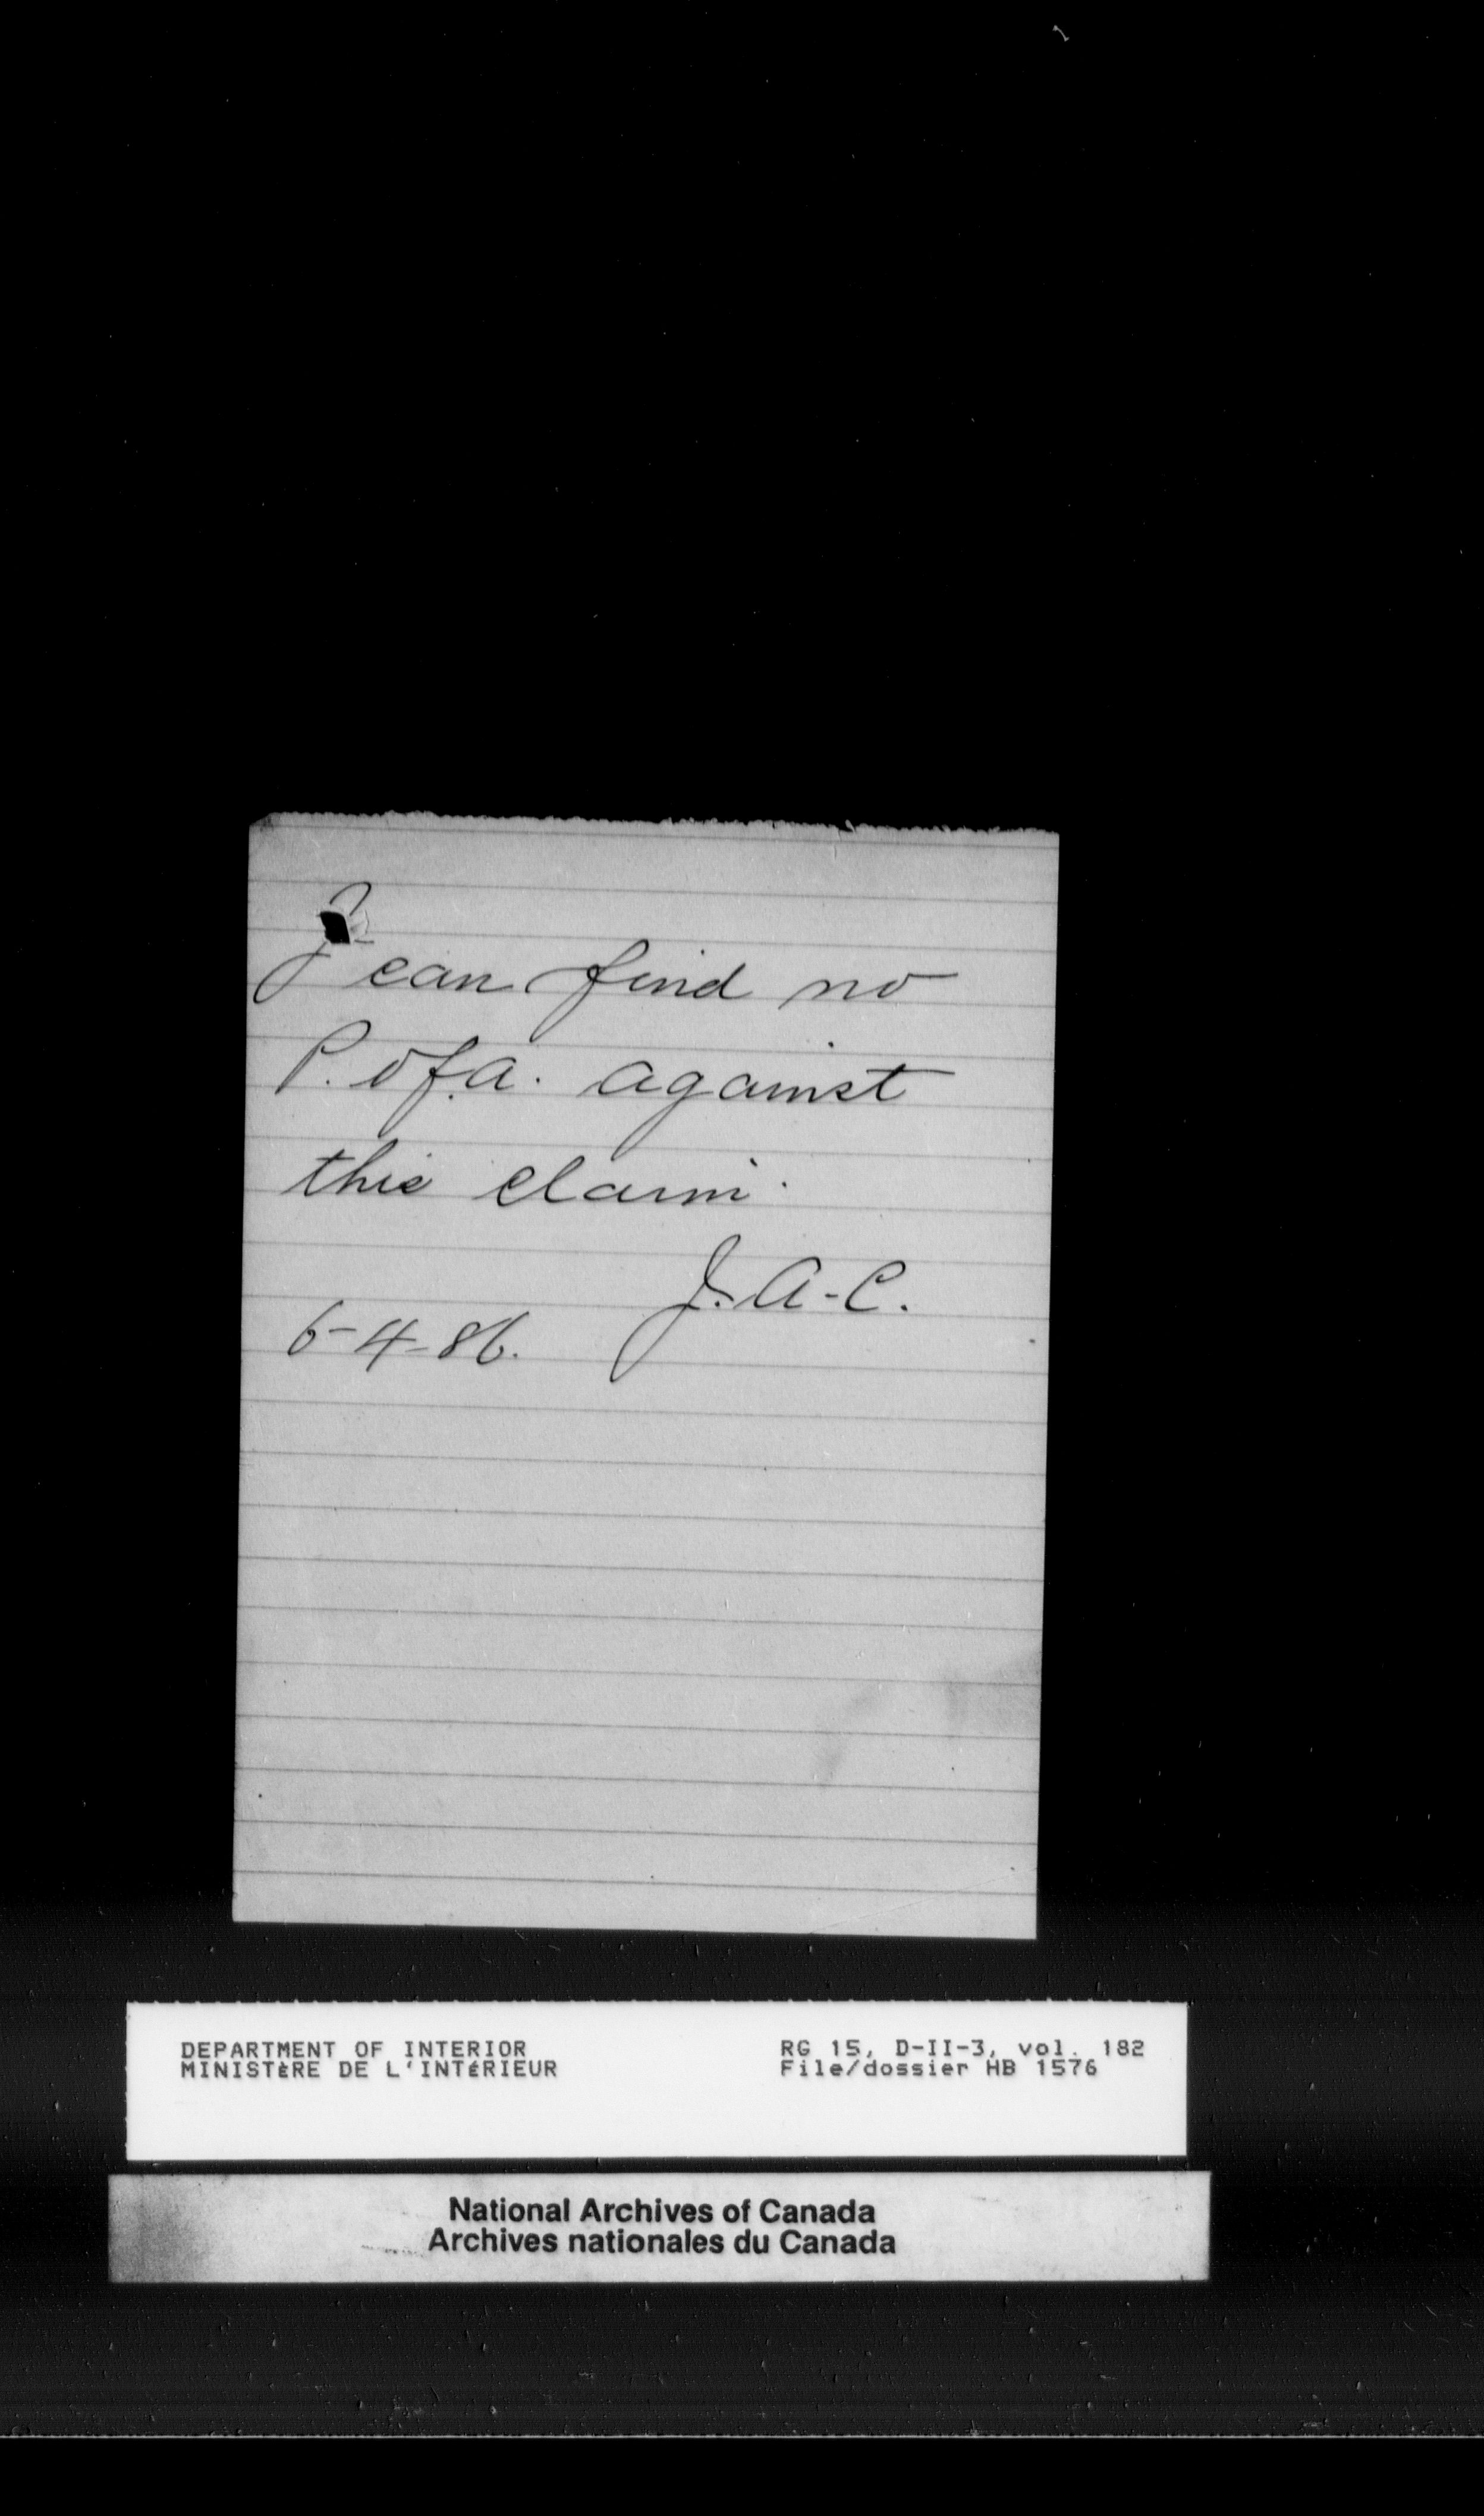 I can find no
P. of A. against
this claim.
J. A. C.
6-4-86.
DEPARTMENT OF INTERIOR
MINISTÈRE DE L'INTÉRIEUR
RG 15, D-II-3, vol. 182
File/dossier HB 1576
National Archives of Canada
Archives nationales du Canada